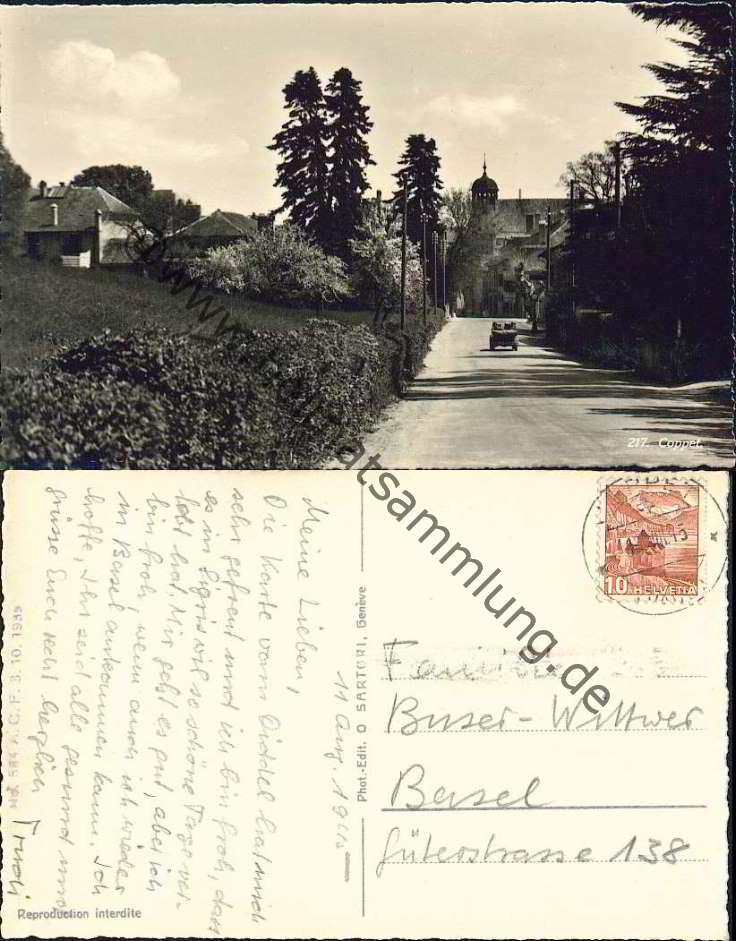 217. Coppet.
© www.heimatsammlung.de
Meine Lieben!
Die Karte vom Diddel hat mich
sehr gefreut und ich bin froh, dass
es in Sigriswil so schöne Tage ver-
lebt hat. Mir geht es gut, aber ich
bin froh, wenn auch ich wieder
in Basel ankommen kann. Ich
hoffe, Ihr seid alle gesund und
grüsse Euch recht herzlich Trudi
11 Aug. 19
Phot.-Edit. O. SARTORI, Genève
10 HELVETIA
Familie
Buser-Wittwer
Basel
Güterstrasse 138
Reproduction interdite